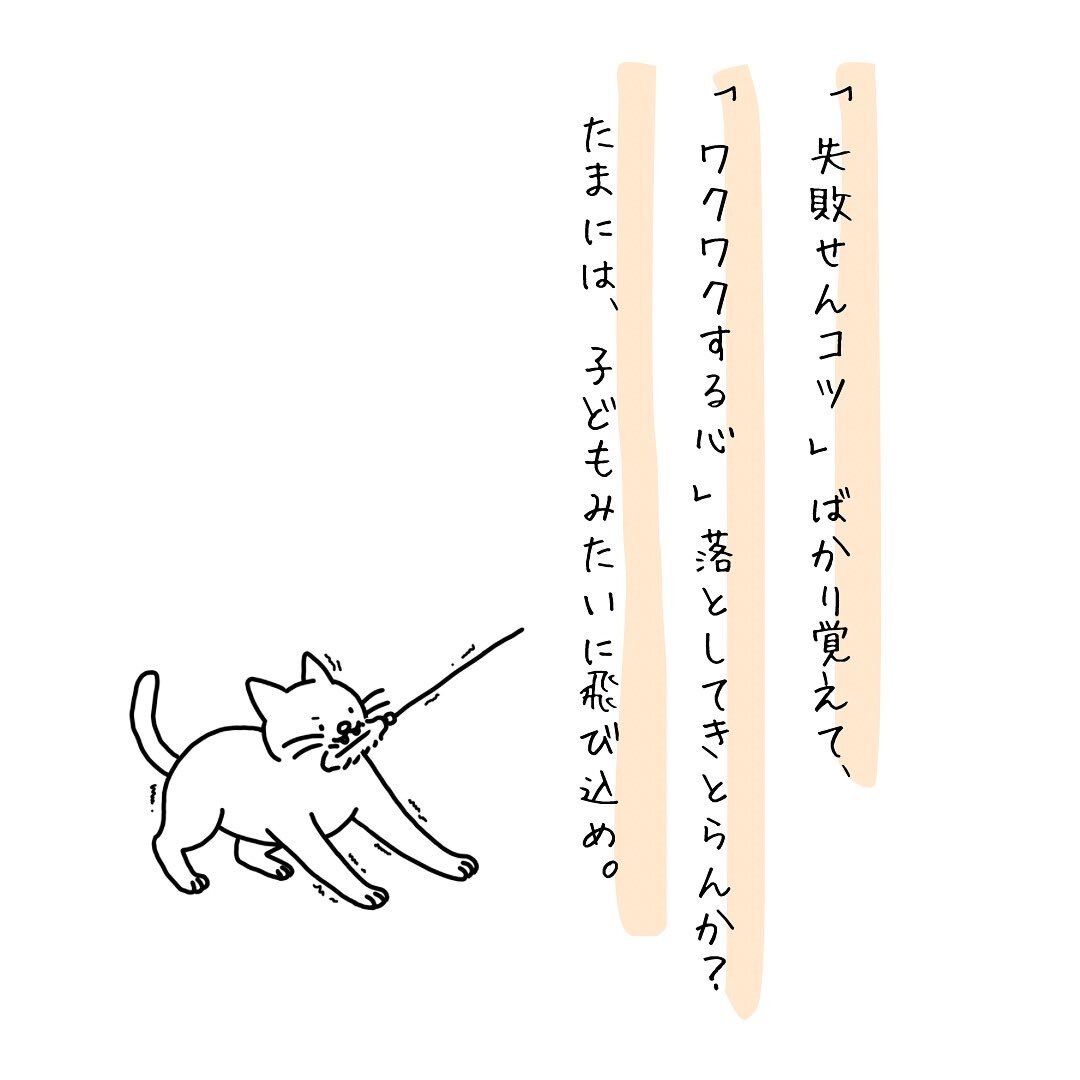 「失敗せんコツ」ばかり覚えて、
「ワクワクする心」落としてきとらんか？
たまには、子どもみたいに飛び込め。